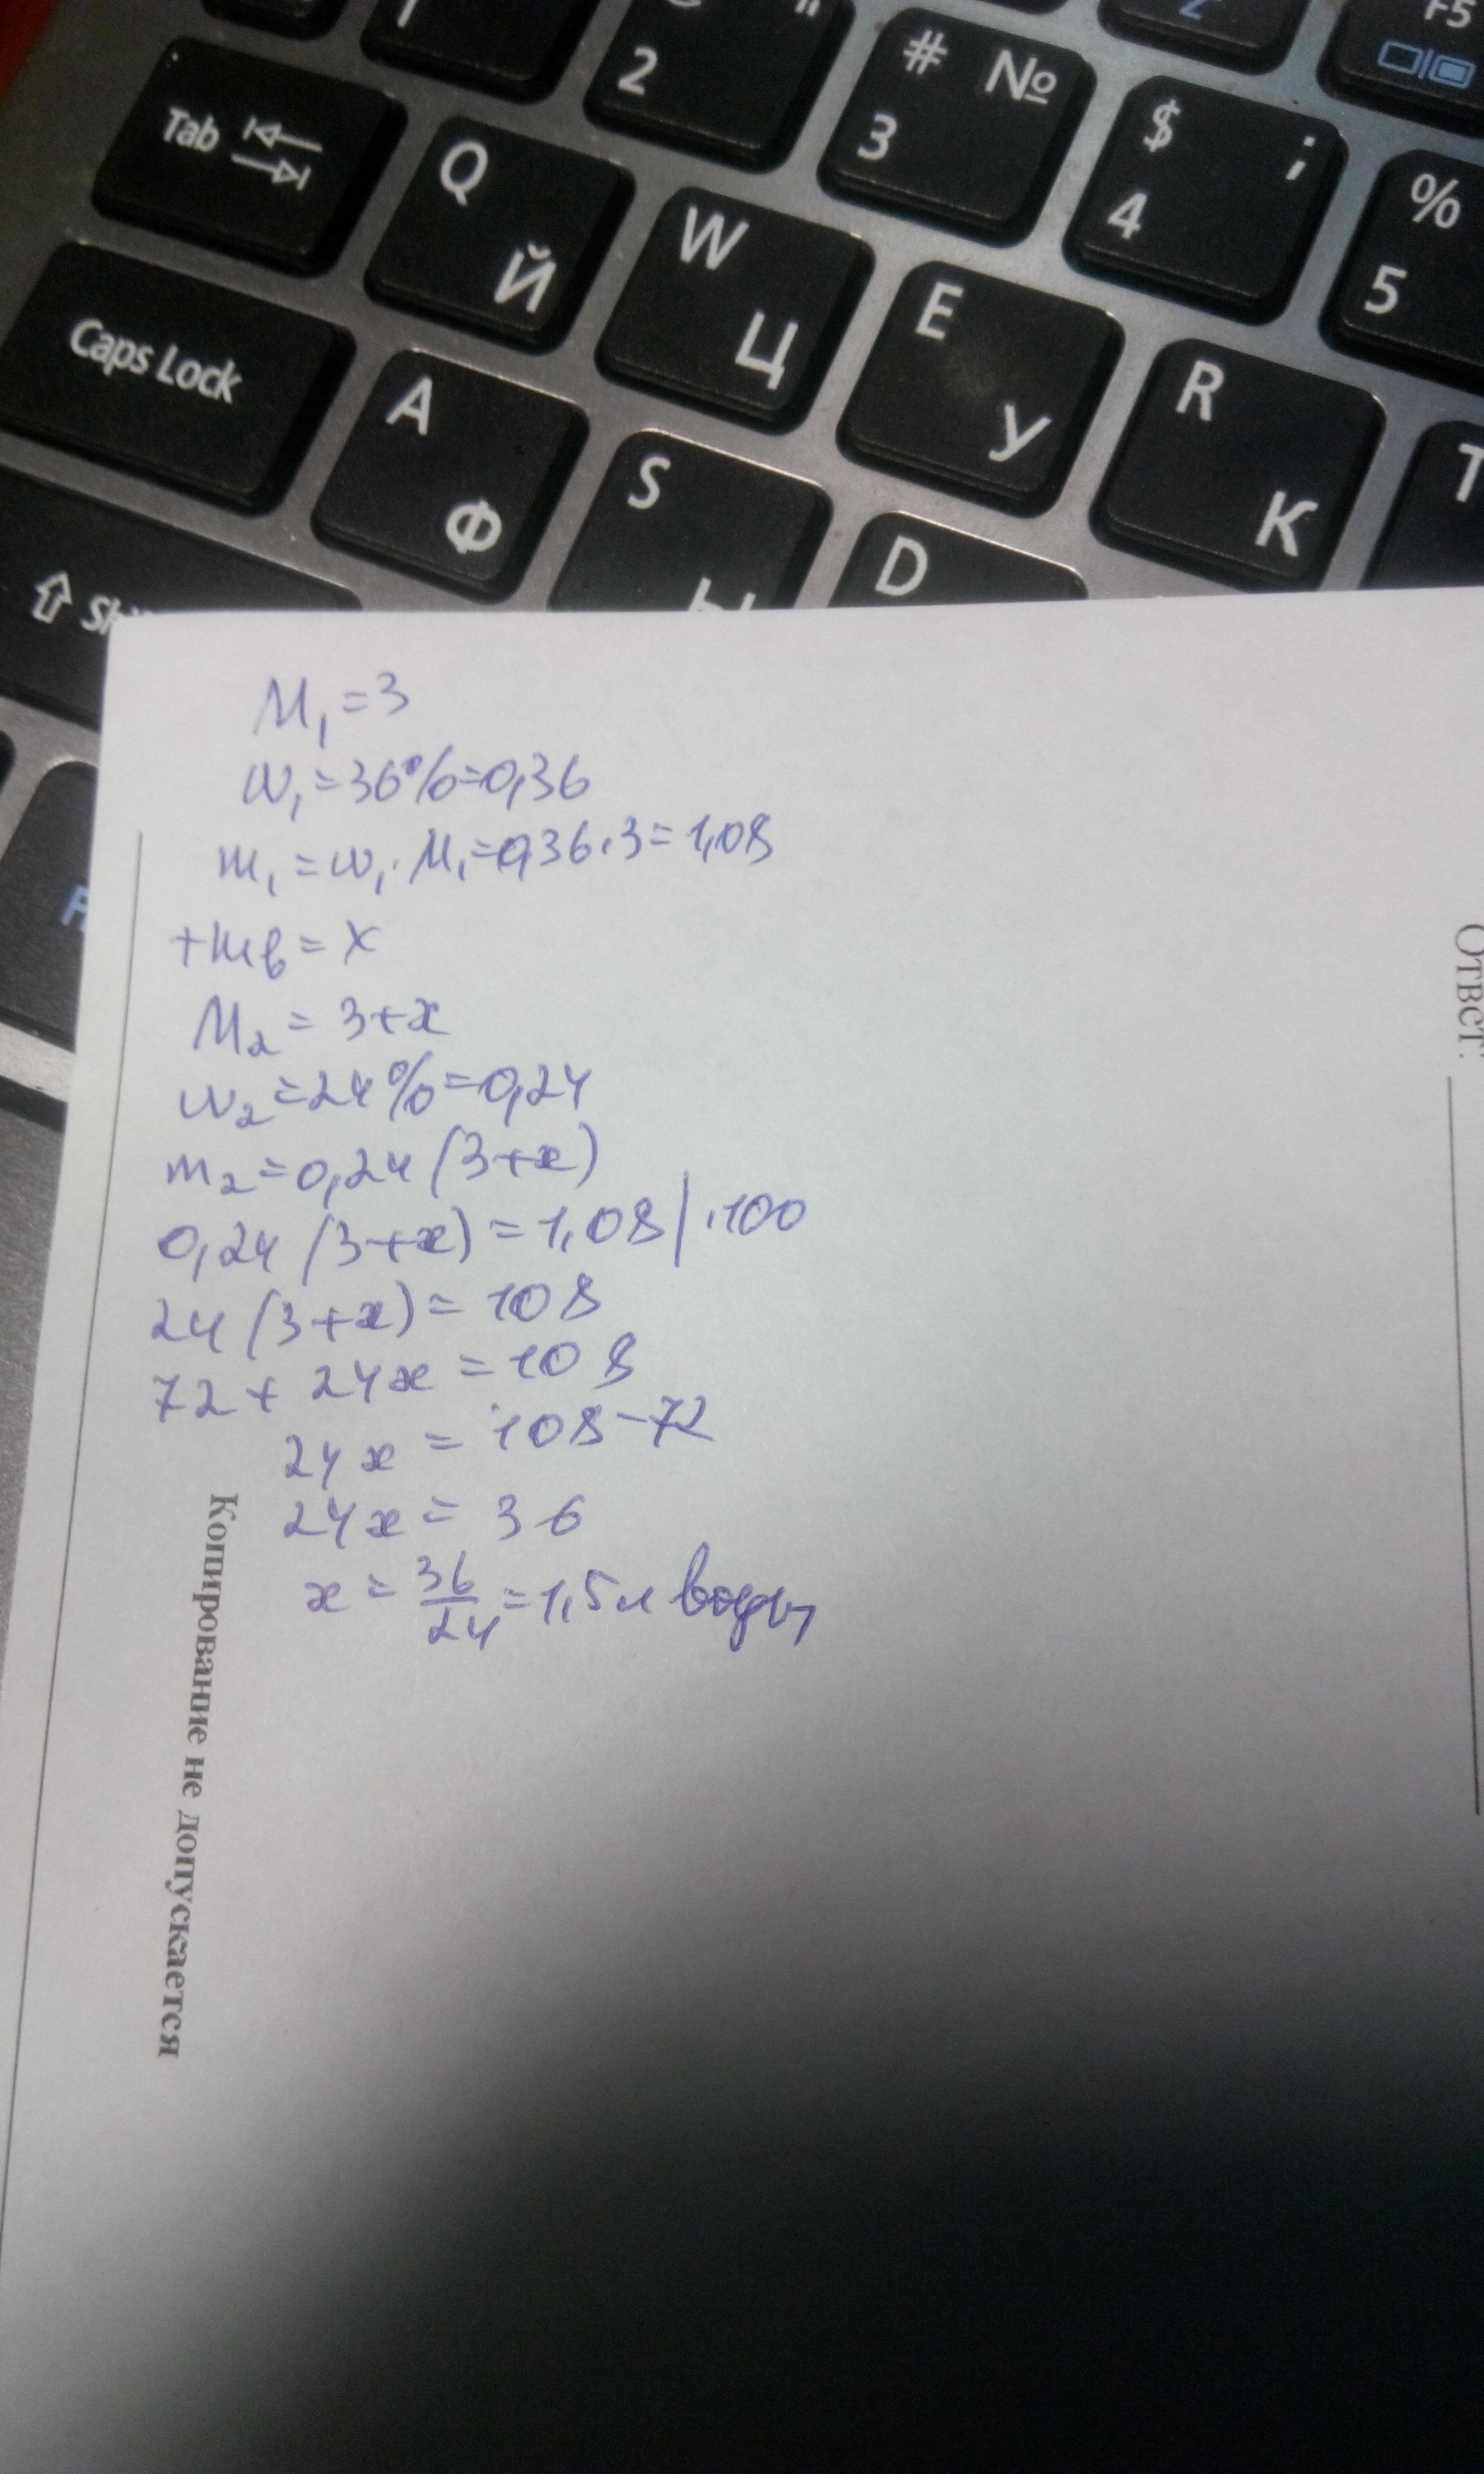 1
2
"
# №
3
$ ;
4
%
5
F5
Tab
Q
Й
W
Ц
E
У
R
К
T
Caps Lock
A
Ф
S
Ы
D
M₁ = 3
w₁ = 36% = 0,36
m₁ = w₁ · M₁ = 0,36 · 3 = 1,08
+mв = x
M₂ = 3+x
w₂ = 24% = 0,24
m₂ = 0,24 (3+x)
0,24 (3+x) = 1,08 | ·100
24 (3+x) = 108
72 + 24x = 108
24x = 108 - 72
24x = 36
x = 36/24 = 1,5 л воды
Ответ:
Копирование не допускается